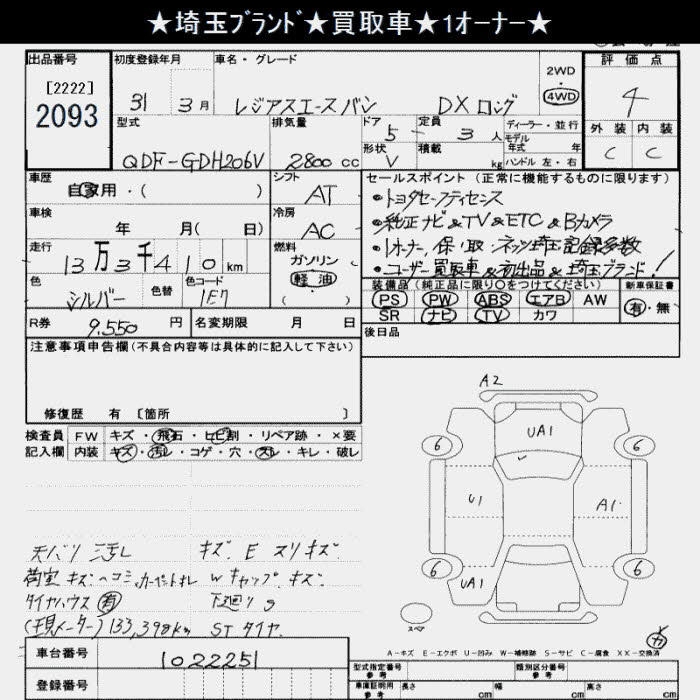 ★埼玉ﾌﾞﾗﾝﾄﾞ★買取車★1オーナー★
出品番号
[2222]
2093
初度登録年月
31 3月
車名・グレード
レジアスエースバン DX ロング
2WD
・
4WD
評価点
4
型式
QDF-GDH206V
排気量
2800 cc
ドア
5
定員
3 人
ディーラー・並行
モデル
年式 年
ハンドル 左・右
形状
V
積載
kg
外装 内装
C C
車歴
自家用・( )
シフト
AT
セールスポイント (正常に機能するものに限ります)
・トヨタセーフティセンス
・純正ナビ&TV&ETC&Bカメラ
・1オーナー、保・取・ネッツ埼玉記録多数
・ユーザー買取車&初出品&埼玉ブランド!
車検
年 月( 日)
冷房
AC
走行
13万3千410km
燃料
ガソリン
軽油
( )
色
シルバー
色替
色コード
1E7
装備品 (純正品に限り○をつけてください)
PS PW ABS エアB AW
SR ナビ TV カワ
新車保証書
有・無
R券
9,550 円
名変期限 月 日
後日品
注意事項申告欄(不具合内容等は具体的に記入して下さい)
修復歴 有 〔箇所 〕
検査員
記入欄
FW キズ・飛石・ヒビ割・リペア跡・×要
内装 キズ・汚レ・コゲ・穴・スレ・キレ・破レ
天バリ 汚レ
荷室 キズヘコミ,カーペットオレ
タイヤハウス 有
(現メーター)133,398km
キズ. E スリキズ.
W キャップ. キズ.
下廻り S
ST タイヤ.
A2
UA1
6
6
U1
A1
6
6
UA1
スペア
A-キズ E-エクボ U-凹み W-補修跡 S-サビ C-腐食 XX-交換済
車台番号
1022251
登録番号
型式指定番号
参考
類別区分番号
参考
車庫証明用
参考
長さ cm
幅 cm
高さ cm